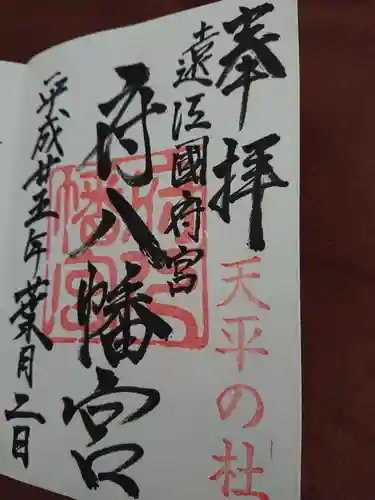 奉拝
天平の杜
遠江國府宮
府八幡宮
平成廿五年葉月二日
府八幡宮